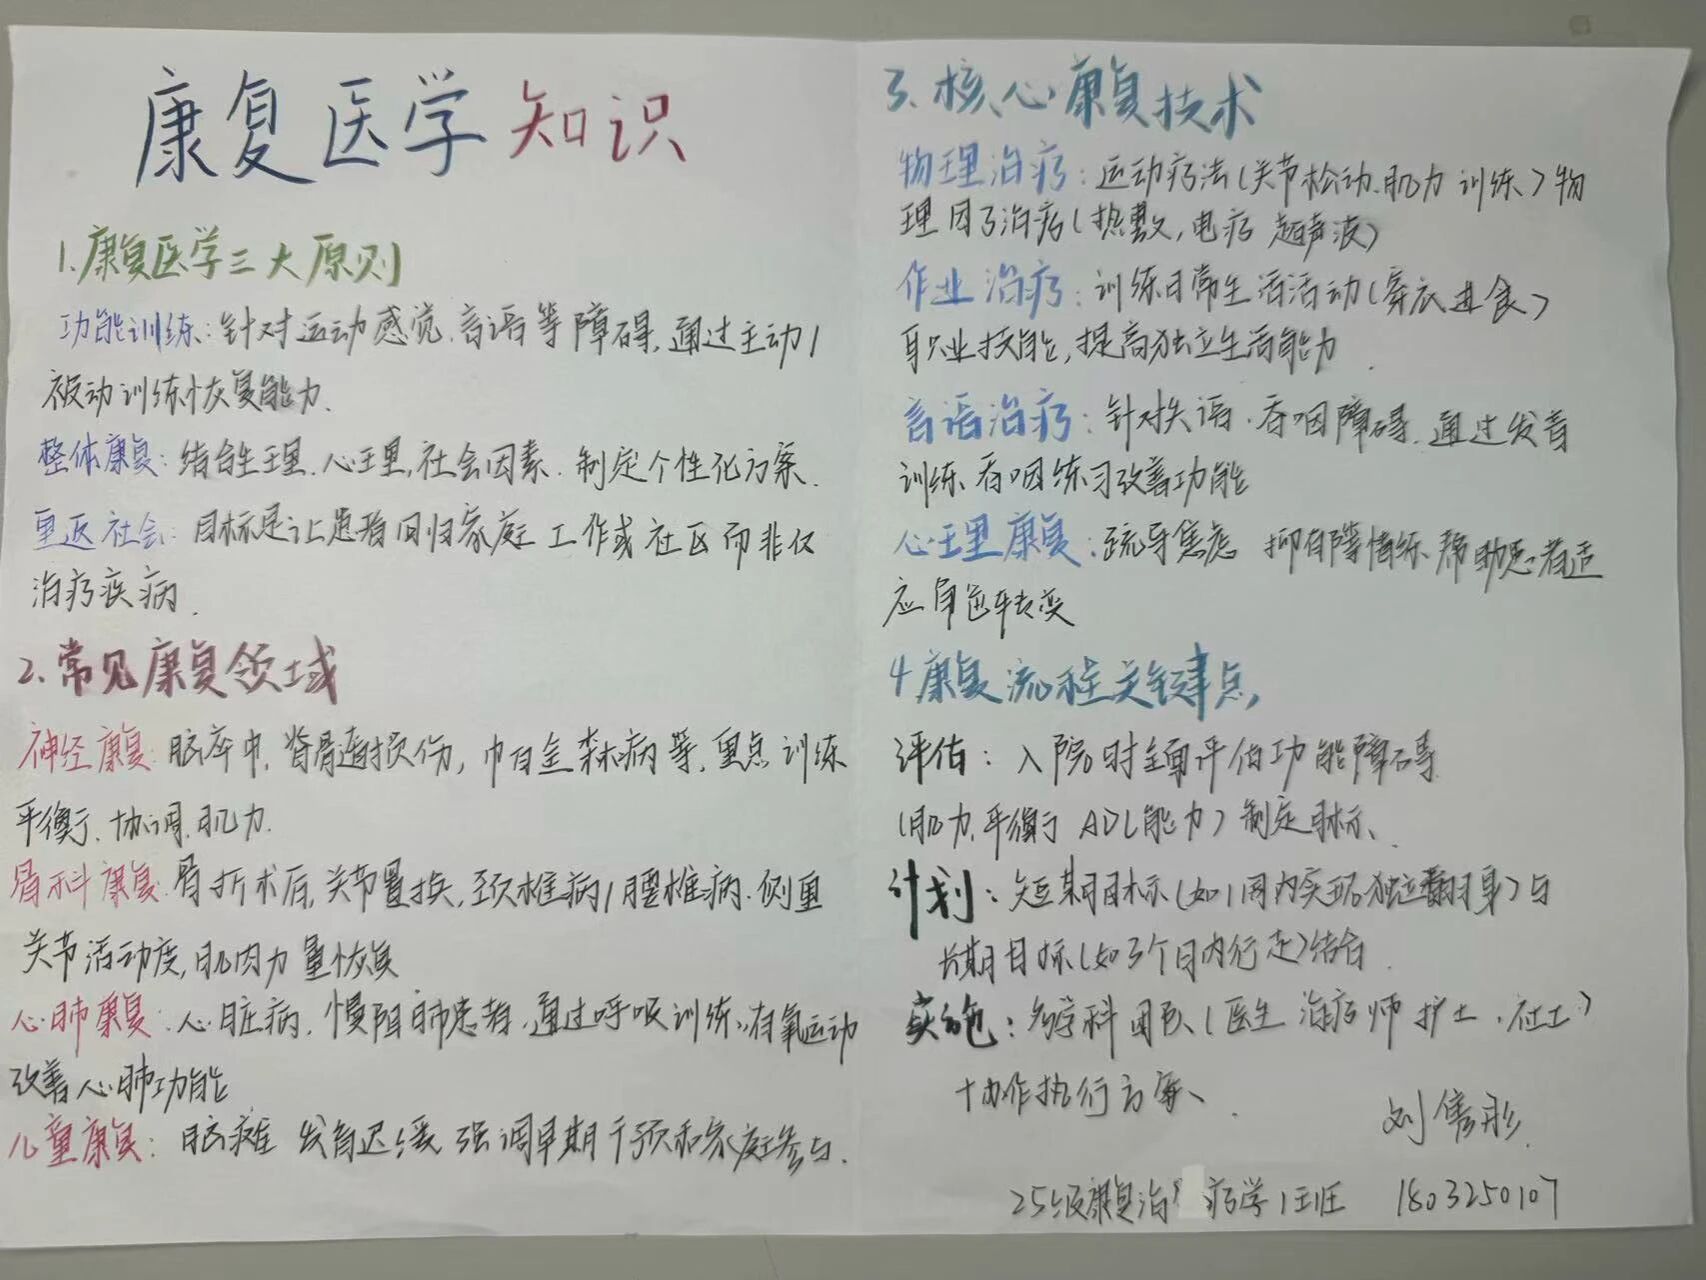 康复医学知识
1.康复医学三大原则
功能训练：针对运动感觉、言语等障碍，通过主动/
被动训练恢复能力.
整体康复：结合生理、心理，社会因素．制定个性化方案．
重返社会：目标是让患者回归家庭 工作或社区而非仅
治疗疾病．
2.常见康复领域
神经康复：脑卒中，脊骨遒损伤，帕金森病等，重点训练
平衡、协调、肌力.
骨科康复：骨折术后，关节置换，颈椎病/腰椎病．侧重
关节活动度，肌肉力量恢复
心肺康复：心脏病．慢阻肺患者．通过呼吸训练、有氧运动
改善心肺功能
儿童康复：脑瘫 发育迟缓 强调早期干预和家庭参与．
3、核心康复技术
物理治疗：运动疗法(关节松动、肌力 训练)物
理因子治疗(热敷，电疗 超声波)
作业治疗：训练日常生活活动(穿衣进食)
职业技能，提高独立生活能力．
言语治疗：针对失语．吞咽障碍．通过发音
训练、吞咽练习改善功能
心理康复：疏导焦虑 抑郁等情绪、帮助患者适
应角色转变
4康复流程关键点，
评估：入院时全面评估功能障碍
(肌力，平衡 ADL能力)制定目标、
计划：短期目标(如1周内实现独立翻身)与
长期目标(如3个月内行走)结合．
实施：多学科团队(医生 治疗师 护士．社工)
协作执行方案、．
刘隽彤
25级康复治疗学1班 1803250107